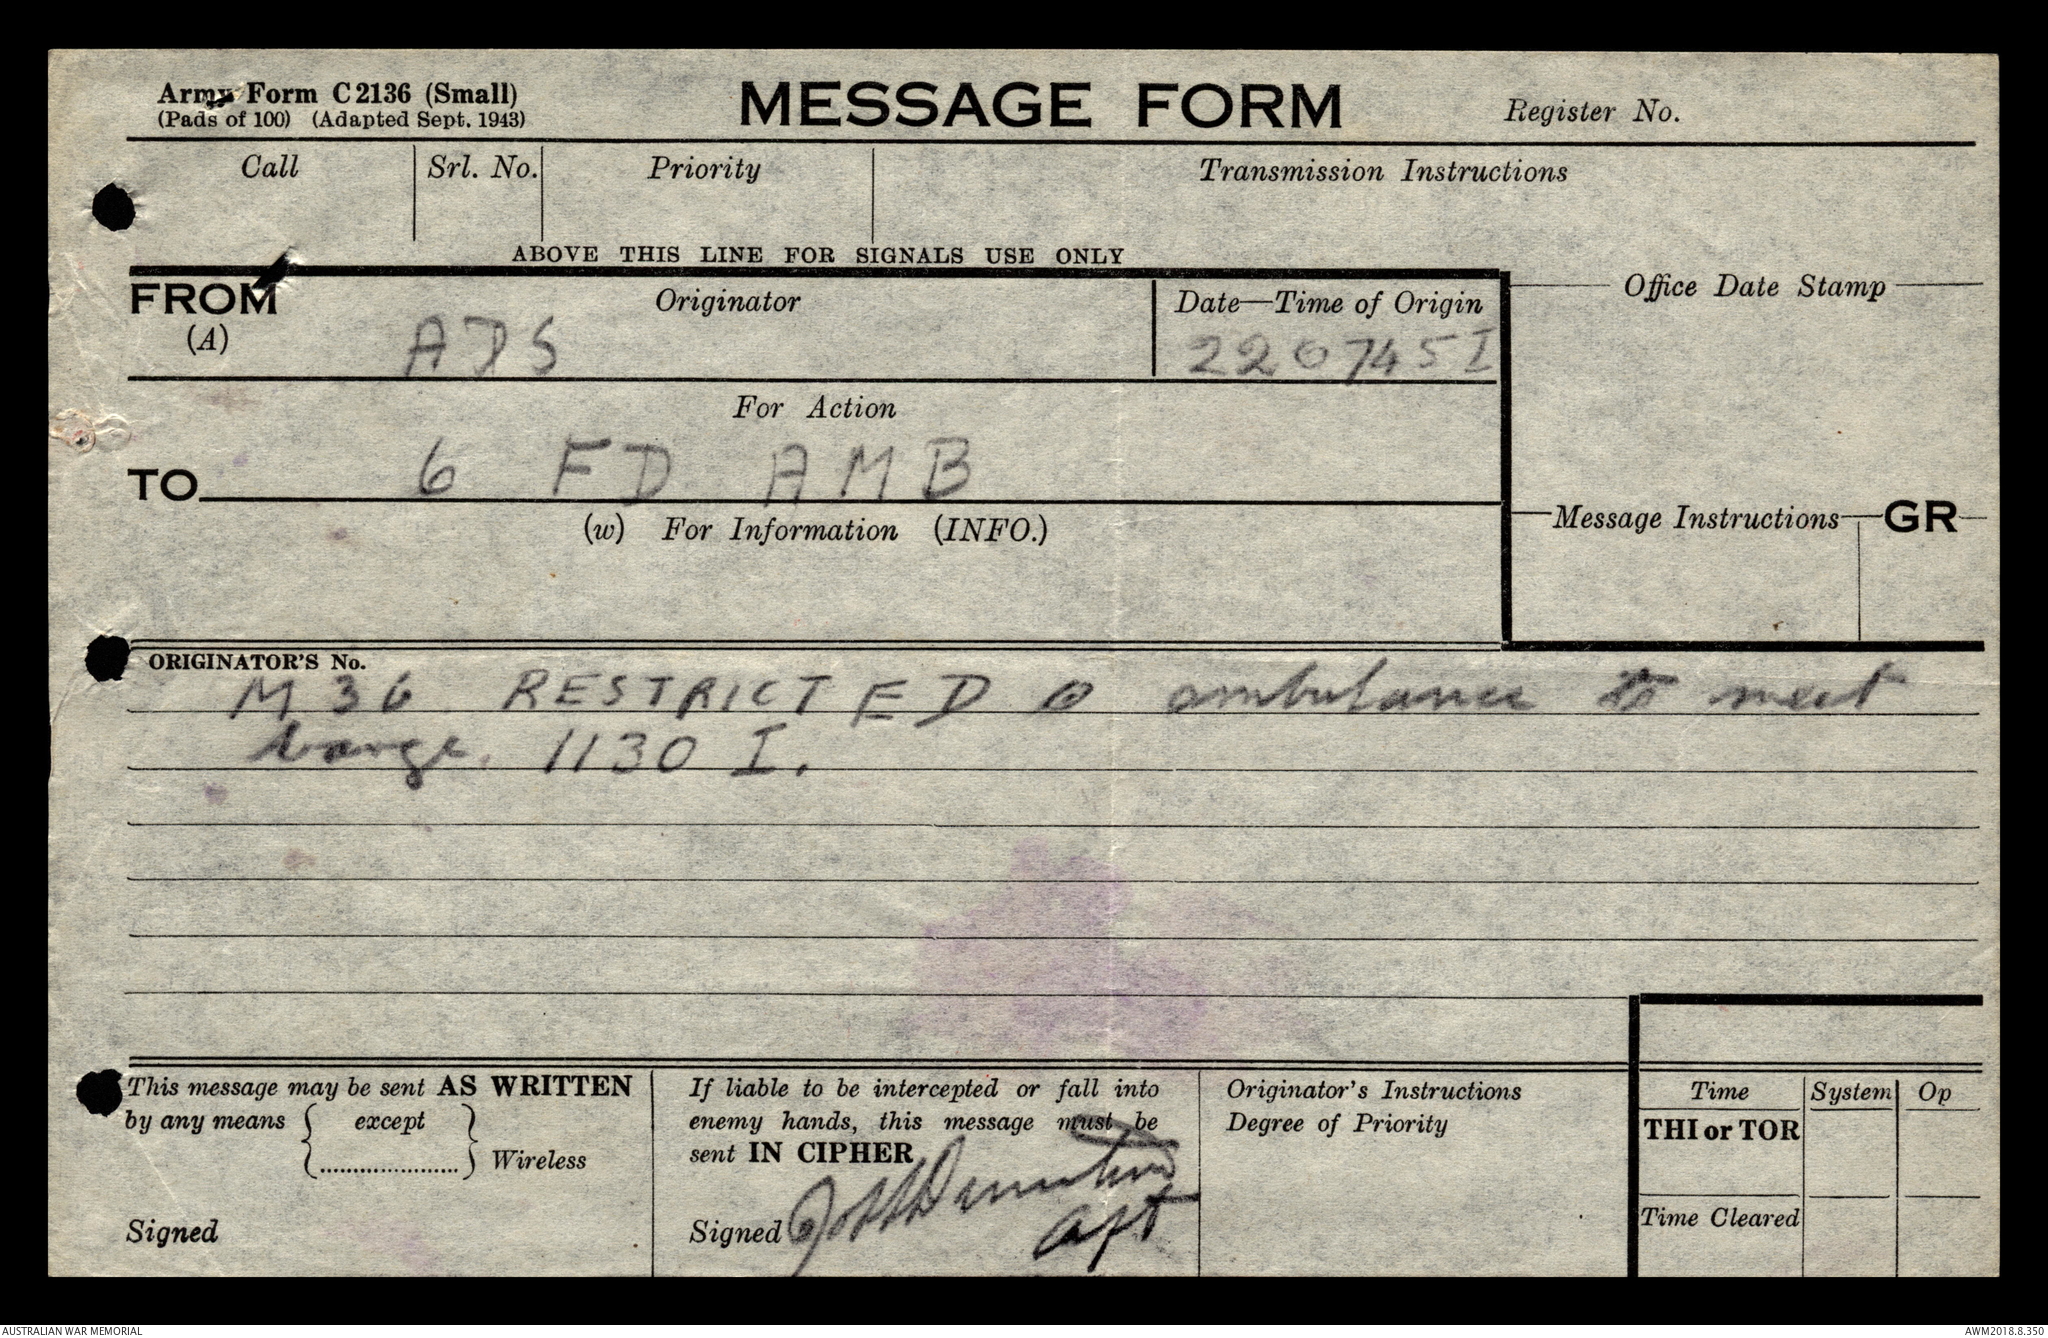 Army Form C2136 (Small)
(Pads of 100) (Adapted Sept. 1943)
MESSAGE FORM
Register No.
Call
Srl. No.
Priority
Transmission Instructions
ABOVE THIS LINE FOR SIGNALS USE ONLY
FROM
(A)
Originator
ADS
Date—Time of Origin
220745 I
Office Date Stamp
For Action
TO
6 FD AMB
(w) For Information (INFO.)
Message Instructions
GR
ORIGINATOR'S No.
M 36 RESTRICTED ambulance to meet
barge. 1130 I.
This message may be sent AS WRITTEN
by any means { except } Wireless
Signed
If liable to be intercepted or fall into
enemy hands, this message must be
sent IN CIPHER
Signed
Capt
Originator's Instructions
Degree of Priority
Time
System
Op
THI or TOR
Time Cleared
AUSTRALIAN WAR MEMORIAL
AWM2018.8.350